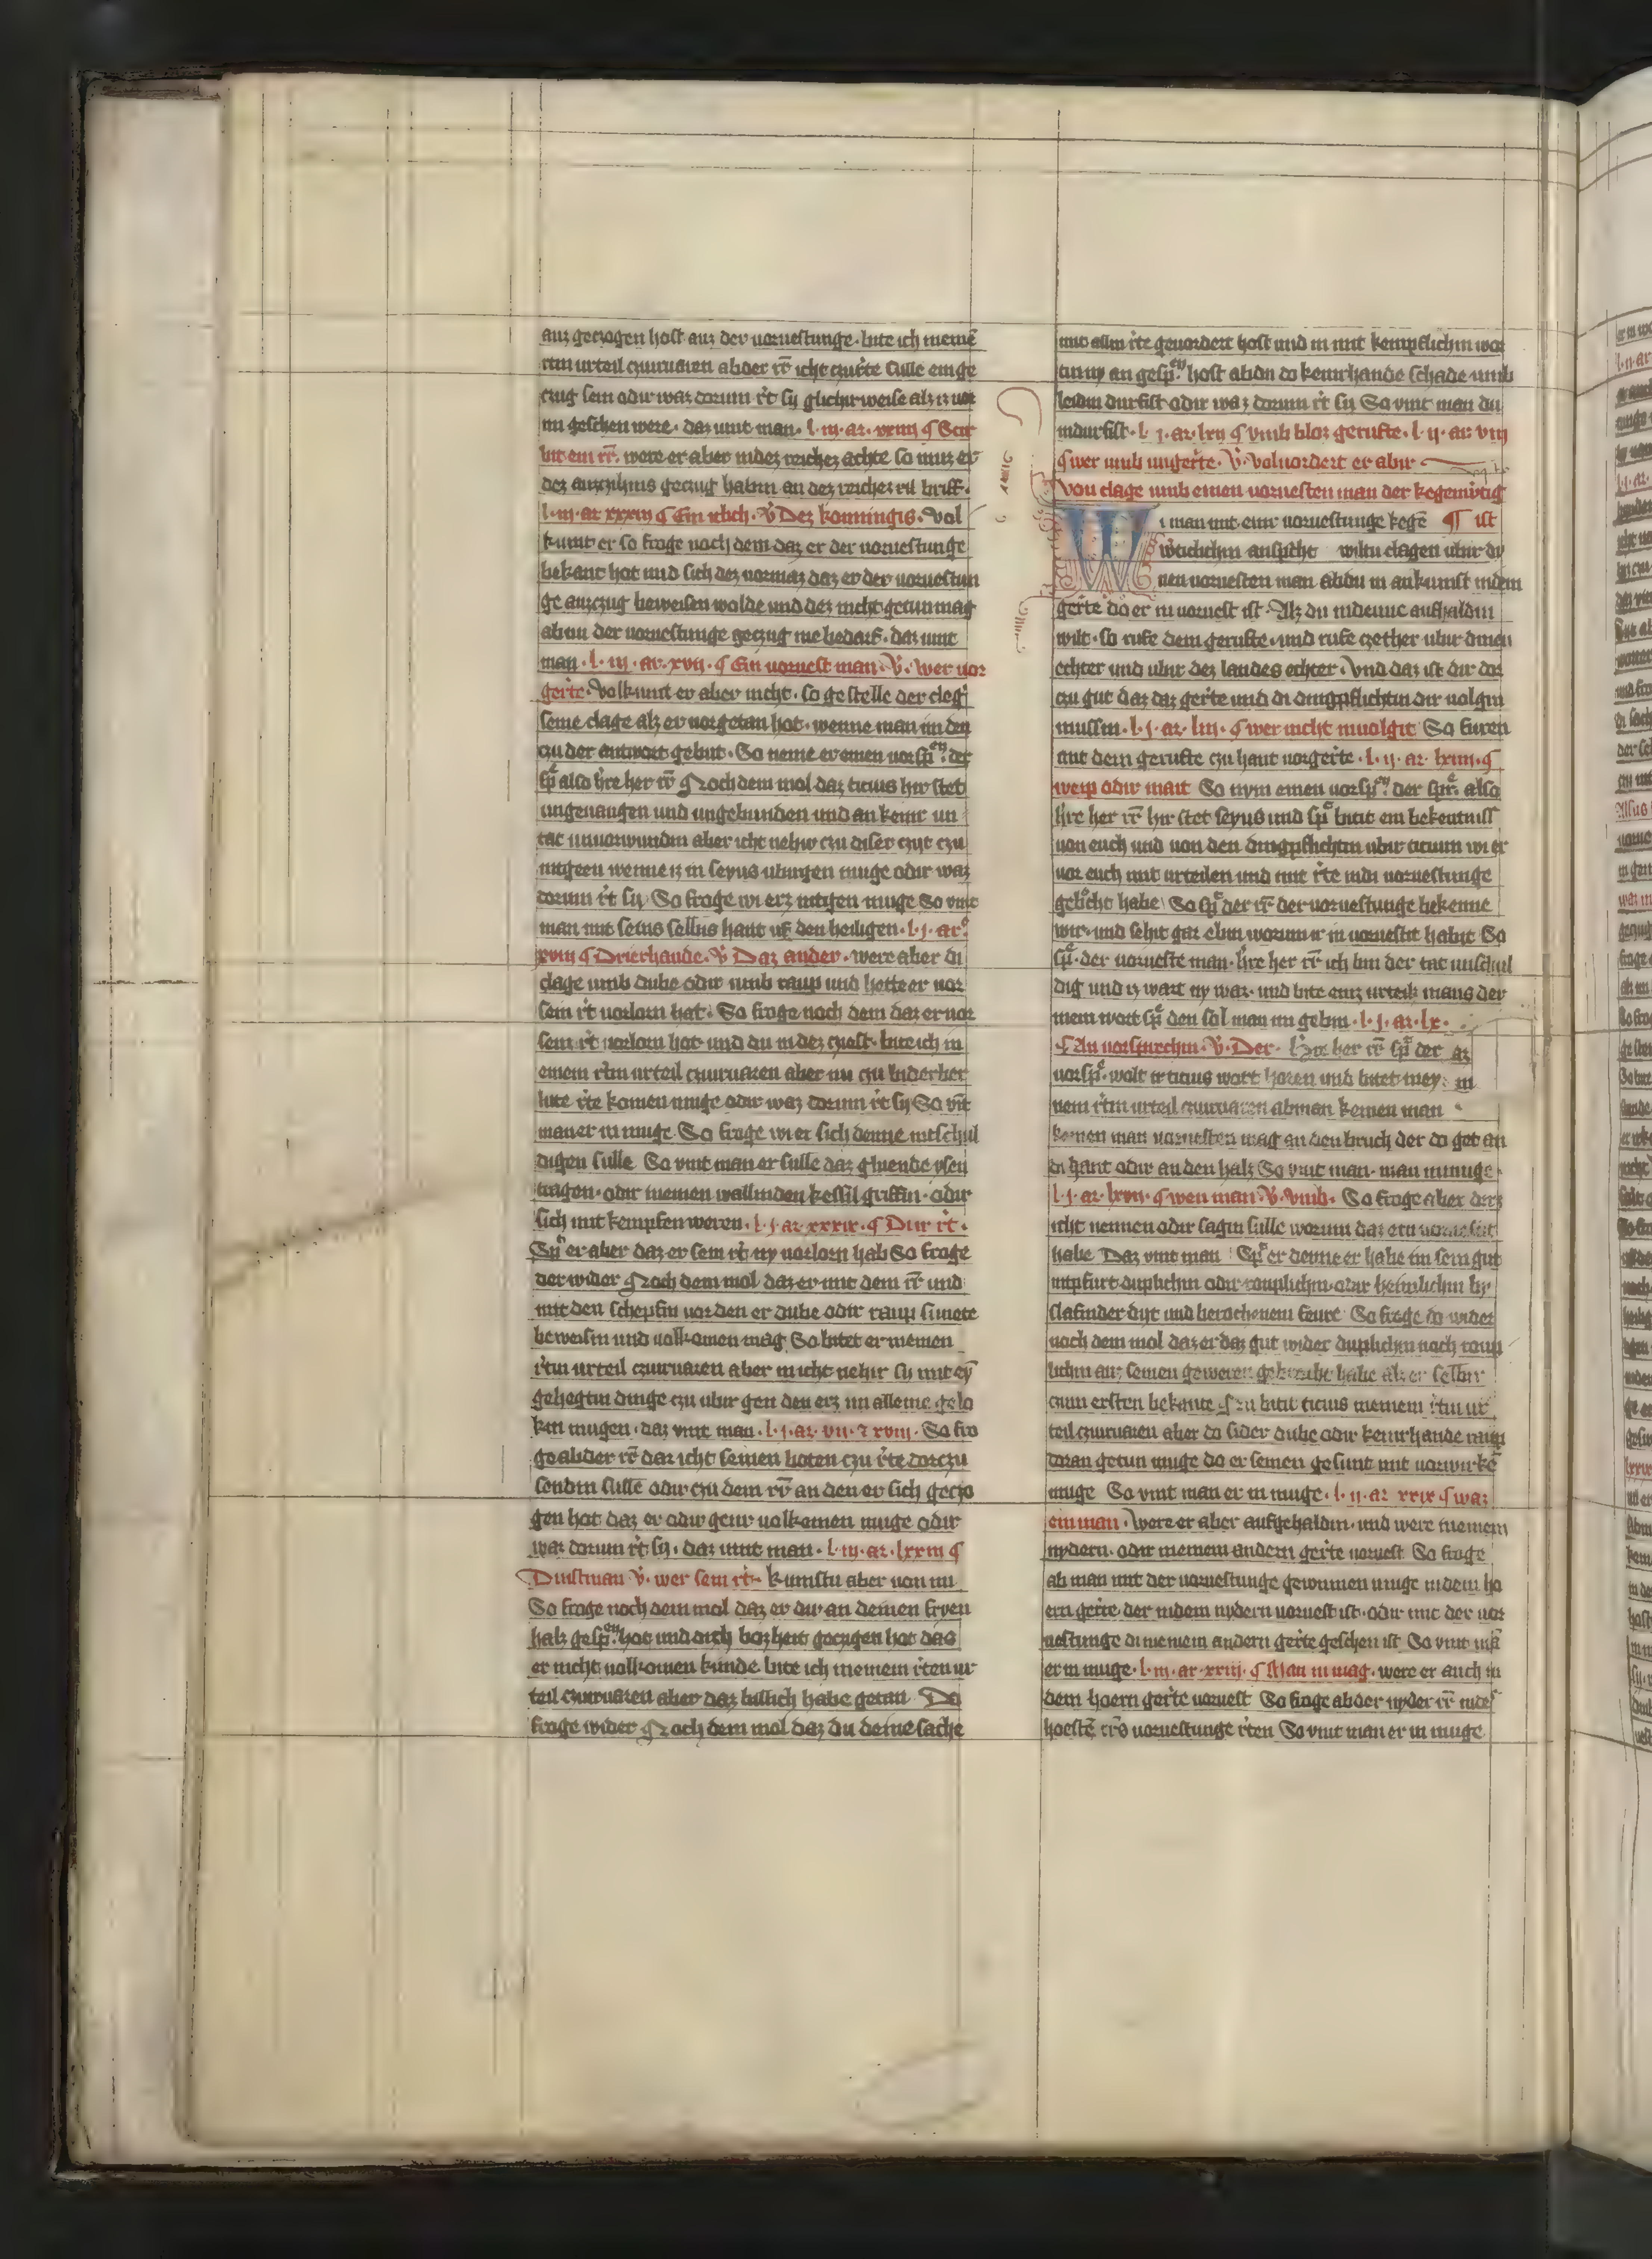 auz geczogen host auz der voruestunge. bite ich meinē
rtin urteil czuuruaren abder rr̄ icht czurte sulle ein ge
czug sein odir waz dorum rt sy glichirweise alz iz vor
im geschen were. daz vint man. l. iii. ar. xviii ¶
but ein rr̄. were er aber indez reichez achte so muz er
dez auzcihins geczug habin an dez reichez briff.
l. iii. ar xxxiiii ¶ Ein iclich. v̓ Dez konningis. Vol
kumt er so froge noch dem daz er der voruestunge
bekant hot und sich dez vormaz daz er der voruestun
ge auzczug beweisen wolde und dez nicht getun mag
abmi der voruestunge geczug me bedarf. daz vint
man. l. iii. ar. xvii. ¶ Ein voruest man. v̓. wer vor
gerte. Volkumt er aber nicht. so gestelle der cleg̓
seine clage alz er vorgetan hot. wenne man im den
czu der antwort gebut. So neme er einen vorsp̄. der
sp̄ also hre her rr̄ Noch dem mol daz ticius hir stet
ungeuangen und ungebunden und an keinir un
tat unuorwundin aber icht nehir czu diser czijt czu
intgeen wenne iz in seyus ubirgen muge odir waz
dorum rt sy So froge wi erz intgen muge So vint
man mit seins selbis hant uf den heiligen. l. i. ar.
xviii ¶ Drierhande. v̓ Daz ander. were aber di
clage umb dube odir umb raup und hette er vor
sein rt vorlorn hat. So froge noch dem daz er vor
sein rt vorlorn hot und du in dez czyest. bite ich in
einem rtin urteil czuuruaren aber nu czu biderber
lute rte komen muge odir waz dorum rt sy So vīt
man er in muge. So froge wi er sich denne intschul
digen sulle So vint man er sulle daz gluende ysen
tragen. odir in einen wallinden kessil griffin. odir
sich mit kempfen weren. l. i. ar. xxxix. ¶ Dur rt.
Sp̄ er aber daz er sein rt ny vorlorn hab So froge
der wider Noch dem mol daz er mit dem rr̄ und
mit den schepfin vor den er dube odir raup sunete
beweisin und volkomen mag So bitet er in einen
rtin urteil czuuruaren aber in icht nehir sy mit eȳ
gehegtin dinge czu ubir gen den erz im alleine gelo
kin mugen. daz vint man. l. i. ar. vii. ⁊ xviii. So fro
ge abder rr̄ dar icht seinen boten czu rte dorczu
sendin sulle odir czu dem rr̄ an den er sich geczo
gen hot daz er odir geur volkomen muge odir
waz dorum rt sy. daz vint man. l. iii. ar. lxxiii ¶
Dinstman v̓. wer sein rt. kumstu aber von im
So froge noch dem mol daz er dir an deinen fryen
halz gesp̄. hot und dich bozheit geczugen hot das
er nicht volkomen kunde. bite ich in einem rten ur
teil czuuruaren aber daz billich habe getan Do
froge wider Noch dem mol daz du deine sache
mit allin rte geuordert host und in mit kempflichin wor
tin ny an gesp̄. host abdu do keinrhande schade umb
leidin durfist odir waz dorum rt sy So vint man du
indurfist. l. i. ar. lxii ¶ vmb bloz gerufte. l. ii. ar. viii
¶ wer umb ungerte. v̓. voluordert er abir
Von clage umb einen voruesten man der kegenw̓tig
Wi man mit einr voruestunge kegē ¶ ist
w̓tichlichin anspricht wiltu clagen ubir dy
nen voruesten man abdu in ankumst in dem
gerte do er in voruest ist. Alz du in denne aufhaldin
wilt. so rufe dem gerufte. und rufe czether ubir dinen
echter und ubir dez landes echter. Vnd daz ist dir dor
czu gut daz daz gerte und di dingpflichtin dir volgin
mussin. l. i. ar. liii. ¶ wer nicht involgit So furen
mit dem gerufte czu hant vorgerte. l. ii. ar. lxiiii. ¶
weip odir mait So nym einen vorsp̄. der spr̄. also
hre her rr̄ hir stet seyus und sp̄ butit em bekentniss
von euch und von den dingpflichtin ubir ticium wi er
vor euch mit urteilen und mit rte in di voruestunge
gebrocht habe So sp̄ der rr̄ der voruestunge bekenne
wir. und sehit gar ebin worum ir in voruestit habit So
sp̄. der voruestē man. hre her rr̄ ich bin der tat unschul
dig und iz wart ny war. und bite einz urteilz manz der
mein wort sp̄ den sol man im gebin. l. i. ar. lx.
¶ An vorsprechin. v̓. Der. Hre her rr̄ sp̄ der
vorsp̄. wolt ir ticius wort horen und bitet in ey
nem rtin urteil czuuruaren abman keinen man
keinen man voruesten mag an den bruch der do get an
di hant odir an den halz So vint man. man inmuge.
l. i. ar. lxvii. ¶ wen man. v̓. vmb. So froge aber derz
icht nennen odir sagin sulle worum daz ern voruestit
habe Daz vint man Sp̄ er denne er habe im sein gut
intpfurt duplichin odir rouplichin odir heimlichin by
slafinder dyt und berochenem feure So froge do wider
noch dem mol daz er daz gut wider duplichin noch roup
lichin auz seinen geweren gebrocht habe alz er selbir
czum ersten bekante So butit ticius in einem rtin ur
teil czuuruaren aber do sider dube odir keinrhande raup
doran getun muge do er seinen gesunt mit vorwirkē
muge So vint man er in muge. l. ii. ar. xxix ¶ waz
ein man. Were er aber aufgehaldin. und were in einem
nydern. odir in einem andern gerte voruest So froge
ab man mit der voruestunge gewinnen muge in dem ho
ern gerte. der in dem nydern voruest ist. odir mit der vor
uestunge di in einem andern gerte geschen ist So vint mā
er in muge. l. iii. ar. xxiiii. ¶ Man in mag. were er auch in
dem hoern gerte voruest So froge abder nyder rr̄ in dez
hoestē rr̄s voruestunge rten So vint man er in muge